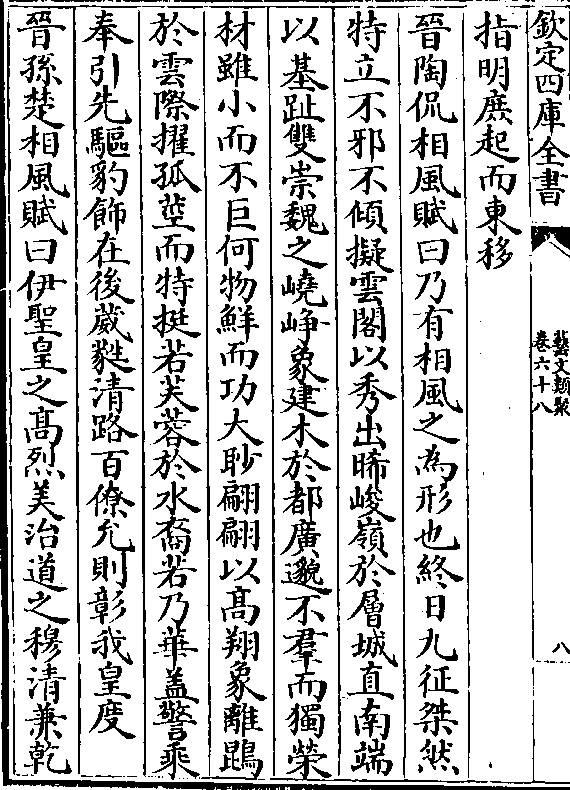 欽定四庫全書
藝文類聚
卷六十八
八
指明庶起而東移
晉陶侃相風賦曰乃有相風之為形也終日九征桀然
特立不邪不傾擬雲閣以秀出晞峻嶺於層城直南端
以基趾雙崇魏之嶢崢象建木於都廣邈不羣而獨榮
材雖小而不巨何物鮮而功大眇翩翩以髙翔象離鵾
於雲際擢孤莖而特挺若芙蓉於水裔若乃華蓋警乘
奉引先驅豹飾在後葳蕤清路百僚允則彰我皇度
晉孫楚相風賦曰伊聖皇之髙烈美治道之穆清兼乾